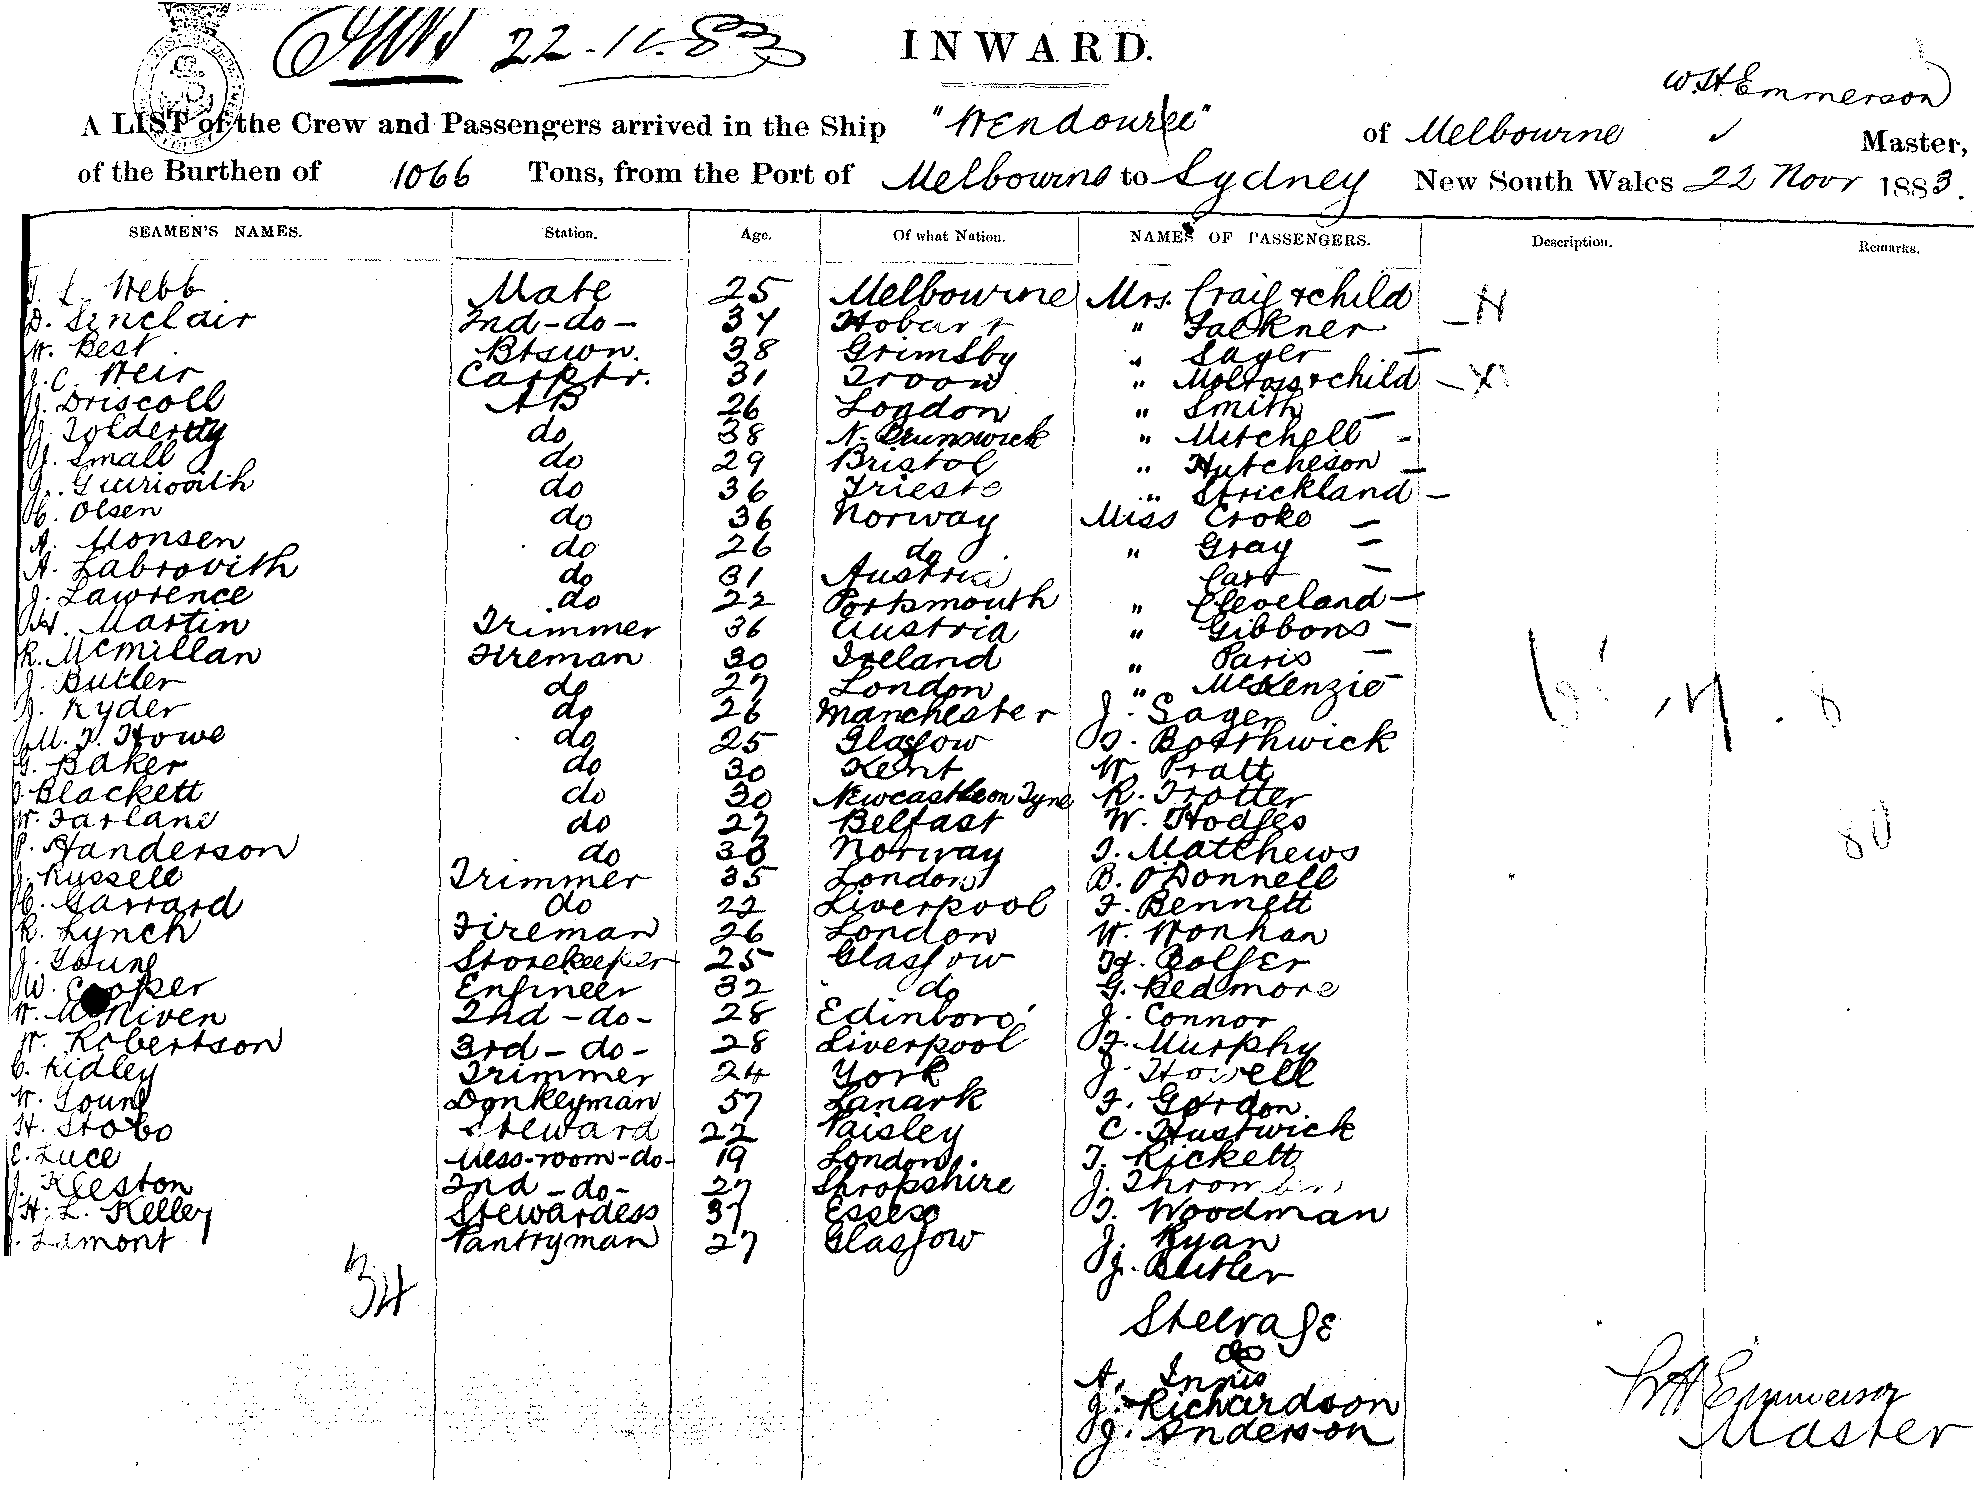 22-11-83
INWARD.
W. H. Emmerson
A LIST of the Crew and Passengers arrived in the Ship "Wendouree" of Melbourne Master,
of the Burthen of 1066 Tons, from the Port of Melbourne to Sydney New South Wales 22 Novr 1883.
SEAMEN'S NAMES. Station. Age. Of what Nation. NAMES OF PASSENGERS. Description. Remarks.
L. Webb Mate 25 Melbourne Mrs. Craig & child
D. Sinclair 2nd -do- 34 Hobart " Falkner
W. Best Btswn. 38 Grimsby " Sager
J. C. Weir Carptr. 31 Troon " & child
J. Driscoll AB 26 London " Smith
J. do 38 N. Brunswick " Mitchell
J. Small do 29 Bristol " Hutcheson
J. do 36 Trieste " Strickland
C. Olsen do 36 Norway Miss Croke
A. Monsen do 26 do " Gray
A. Labrovith do 31 Austria Carr
J. Lawrence do 22 Portsmouth " Cleveland
W. Martin Trimmer 36 Austria " Gibbons
R. McMillan Fireman 30 Ireland " Paris
J. Butler do 27 London " McKenzie
J. Ryder do 26 Manchester J. Sager
M. J. Howe do 25 Glasgow T. Borthwick
G. Baker do 30 Kent W. Pratt
Blackett do 30 Newcastle on Tyne R. Trotter
W. Farlane do 27 Belfast W. Hodges
P. Handerson do 38 Norway T. Matthews
J. Russell Trimmer 35 London B. O'Donnell
C. Garrard do 22 Liverpool F. Bennett
R. Lynch Fireman 26 London W. Wonhan
J. Young Storekeeper 25 Glasgow H. Bolger
W. Cooper Engineer 32 do G. Redmore
W. McNiven 2nd -do- 28 Edinboro' J. Connor
W. Robertson 3rd -do- 28 Liverpool F. Murphy
C. Ridley Trimmer 24 York J. Howell
W. Young Donkeyman 57 Lanark F. Gordon.
H. Stobo Steward 22 Paisley C. Hustwick
C. Luce Mess-room-do- 19 London. T. Rickett
J. Kleston 2nd -do- 27 Shropshire J.
H. L. Kelley Stewardess 37 Essex T. Woodman
Lamont Pantryman 27 Glasgow J. Ryan
J. Butler
34
Steerage
do
A. Innis
J. Richardson
J. Anderson
80
W H Emmerson
Master